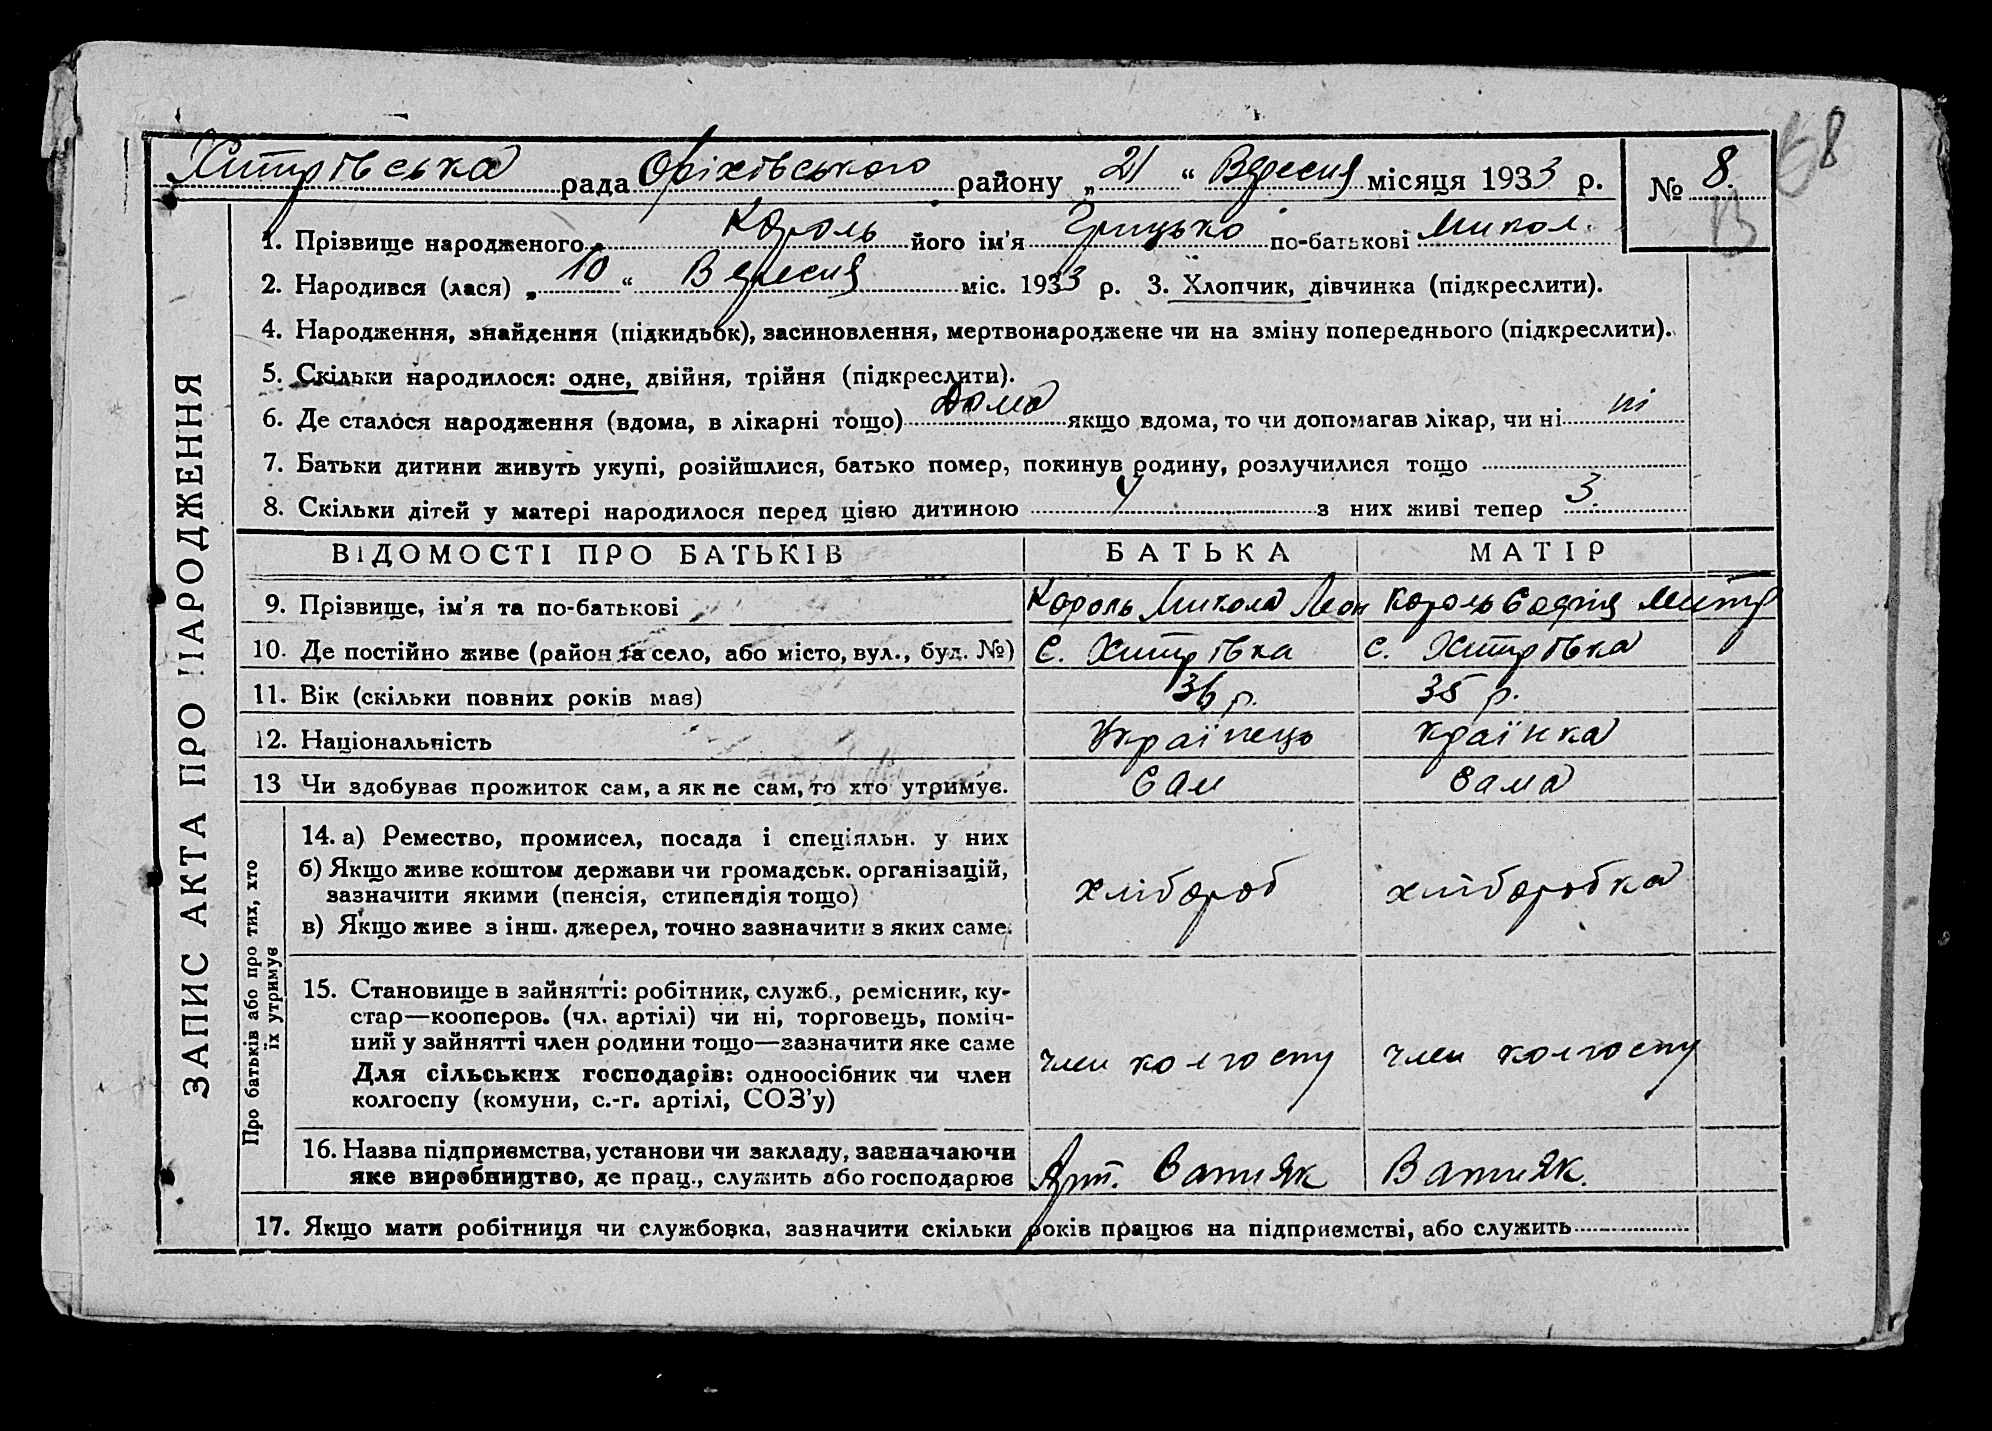 68
Хитрівська рада Оріхівського району „21“ Вересня місяця 1933 р. № 8.
ЗАПИС АКТА ПРО НАРОДЖЕННЯ
1. Прізвище народженого Король його ім'я Грицько по-батькові Микол.
2. Народився (лася) „10“ Вересня міс. 1933 р. 3. Хлопчик, дівчинка (підкреслити).
4. Народження, знайдення (підкидьок), засиновлення, мертвонароджене чи на зміну попереднього (підкреслити).
5. Скільки народилося: одне, двійня, трійня (підкреслити).
6. Де сталося народження (вдома, в лікарні тощо) Дома якщо вдома, то чи допомагав лікар, чи ні ні
7. Батьки дитини живуть укупі, розійшлися, батько помер, покинув родину, розлучилися тощо
8. Скільки дітей у матері народилося перед цією дитиною 4 з них живі тепер 3.
ВІДОМОСТІ ПРО БАТЬКІВ БАТЬКА МАТІР
9. Прізвище, ім'я та по-батькові Король Микола Леон Король Софія Митр
10. Де постійно живе (район та село, або місто, вул., буд. №) с. Хитрівка с. Хитрівка
11. Вік (скільки повних років має) 36 р. 35 р.
12. Національність Українець країнка
13 Чи здобуває прожиток сам, а як не сам, то хто утримує. Сам сама
Про батьків або про тих, хто
їх утримує
14. а) Ремество, промисел, посада і спеціяльн. у них
б) Якщо живе коштом держави чи громадськ. організацій,
зазначити якими (пенсія, стипендія тощо)
хлібороб хліборобка
в) Якщо живе з інш. джерел, точно зазначити з яких саме.
15. Становище в зайнятті: робітник, служб., ремісник, ку-
стар—кооперов. (чл. артілі) чи ні, торговець, поміч-
ний у зайнятті член родини тощо—зазначити яке саме
член колгоспу член колгоспу
Для сільських господарів: одноосібник чи член
колгоспу (комуни, с.-г. артілі, СОЗ'у)
16. Назва підприємства, установи чи закладу, зазначаючи
яке виробництво, де прац., служить або господарює Арт. Ватняк Ватняк.
17. Якщо мати робітниця чи службовка, зазначити скільки років працює на підприємстві, або служить